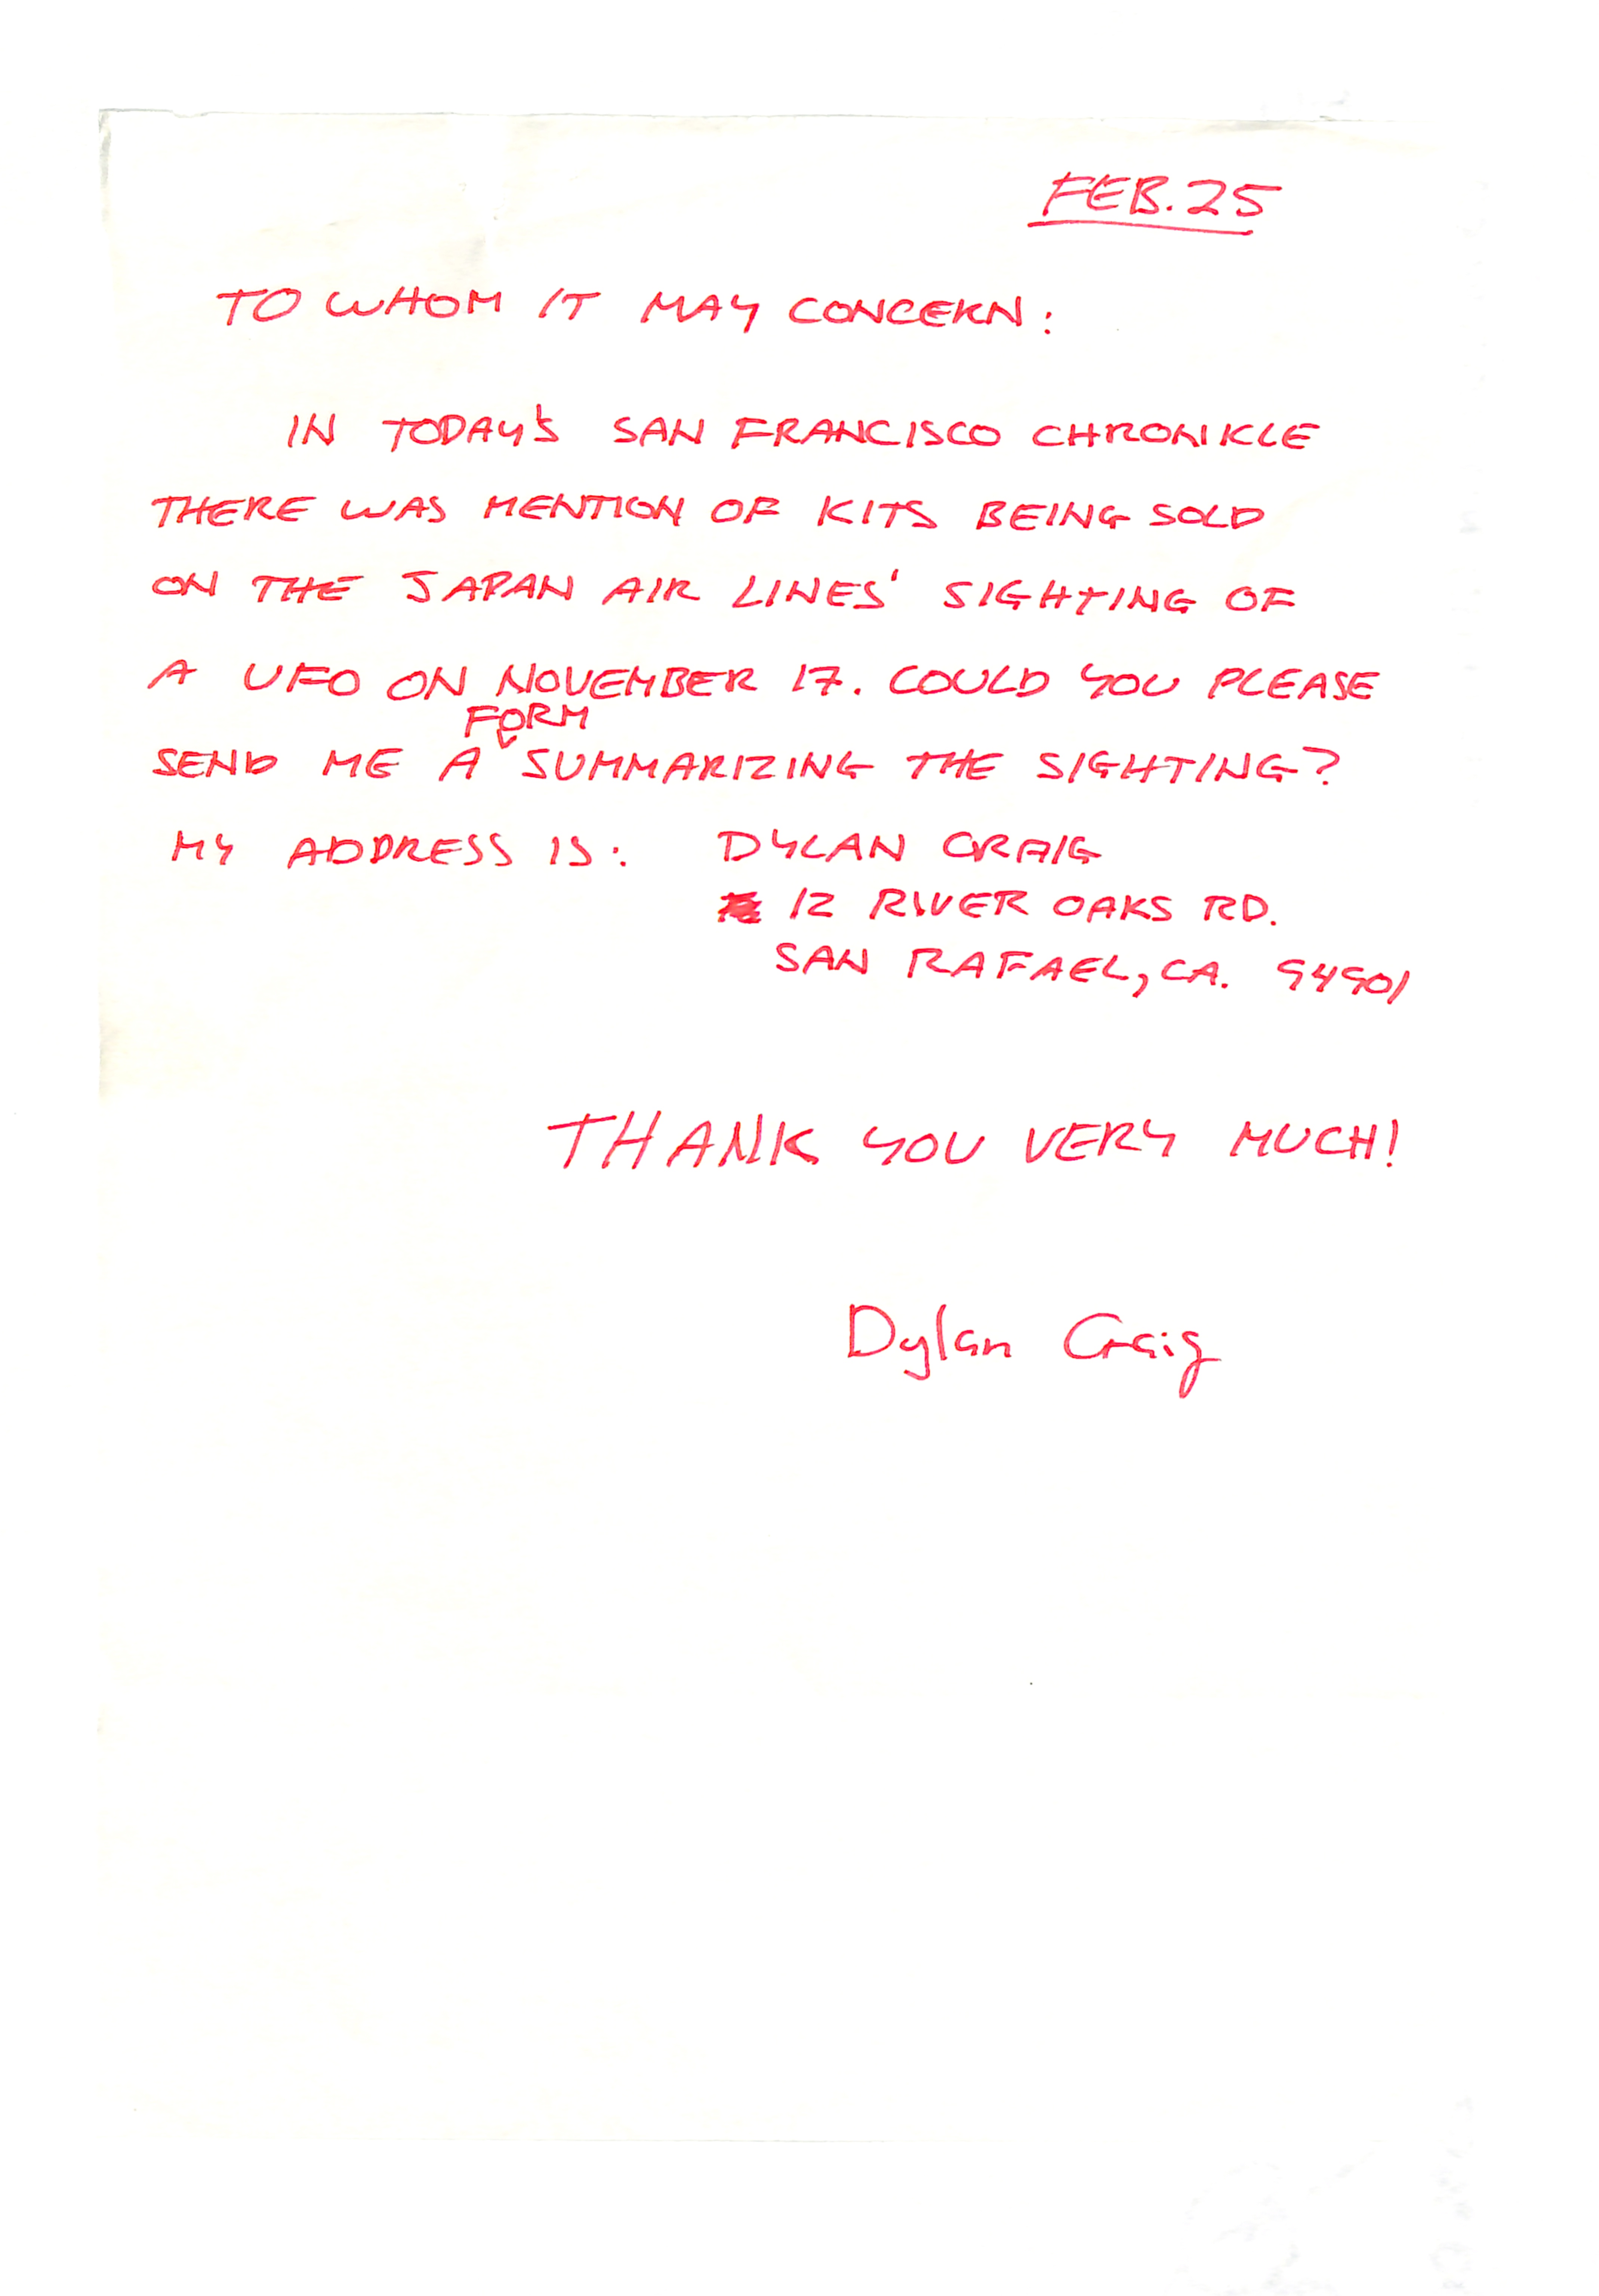 FEB. 25
TO WHOM IT MAY CONCERN:
IN TODAY'S SAN FRANCISCO CHRONIKLE
THERE WAS MENTION OF KITS BEING SOLD
ON THE JAPAN AIR LINES' SIGHTING OF
A UFO ON NOVEMBER 17. COULD YOU PLEASE
FORM
SEND ME A SUMMARIZING THE SIGHTING?
MY ADDRESS IS: DYLAN CRAIG
12 RIVER OAKS RD.
SAN RAFAEL, CA. 94901
THANK YOU VERY MUCH!
Dylan Craig